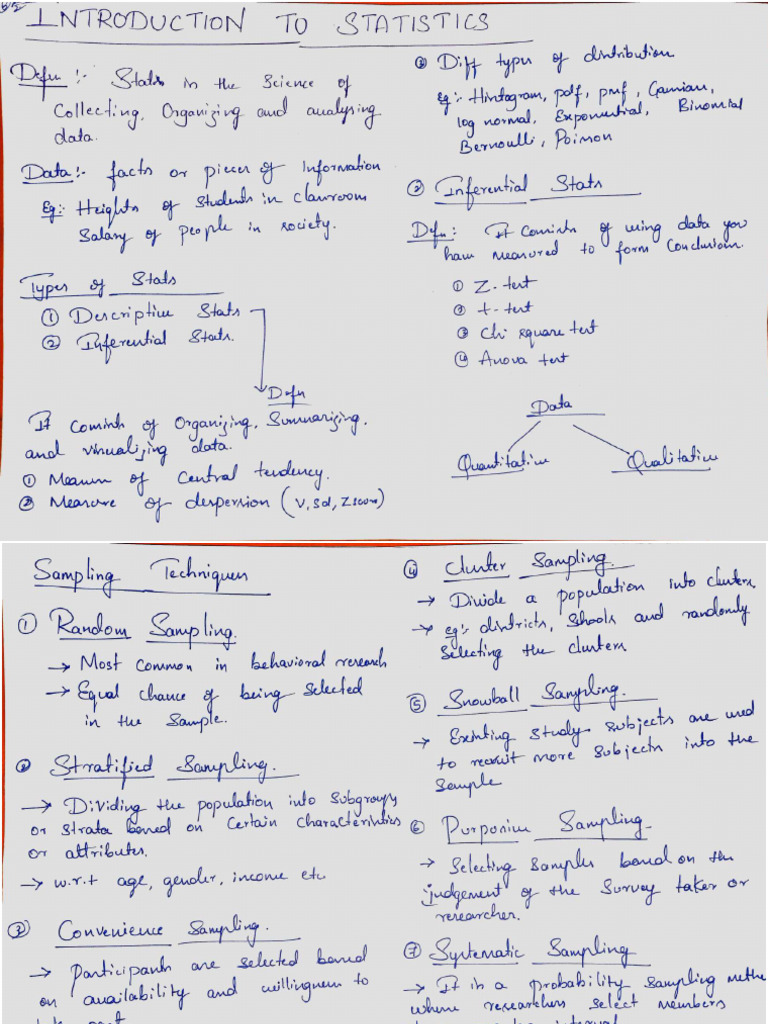 INTRODUCTION TO STATISTICS
Defn :- Stats is the Science of
Collecting, Organizing and analysing
data.
Data :- facts or pieces of Information
Eg:- Heights of Students in classroom
Salary of people in society.
Types of Stats
① Descriptive Stats
② Inferential Stats.
Defn
It consists of Organizing, Summarizing,
and visualizing data.
① Measure of Central tendency.
② Measure of despersion (V, Sd, Zscore)
③ Diff types of distribution
Eg:- Histogram, pdf, pmf, Gaussian,
log normal, Exponential, Binomial
Bernoulli, Poisson
② Inferential Stats
Defn: It consists of using data you
have measured to form Conclusion.
① Z-test
② t-test
③ Chi square test
④ Anova test
Data
Quantitative Qualitative
Sampling Techniques
① Random Sampling.
→ Most common in behavioral research
→ Equal chance of being selected
in the sample.
② Stratified Sampling.
→ Dividing the population into Subgroups
or strata based on certain characteristics
or attributes.
→ w.r.t age, gender, income etc
③ Convenience Sampling.
→ Participants are selected based
on availability and willingness to
④ Cluster Sampling.
→ Divide a population into clusters
→ eg:- districts, Schools and randomly
selecting the clusters
⑤ Snowball Sampling.
→ Existing study subjects are used
to recruit more subjects into the
sample
⑥ Purposive Sampling.
→ Selecting samples based on the
judgement of the survey taker or
researcher.
⑦ Systematic Sampling
→ It is a probability sampling metho
where researchers select members
interval